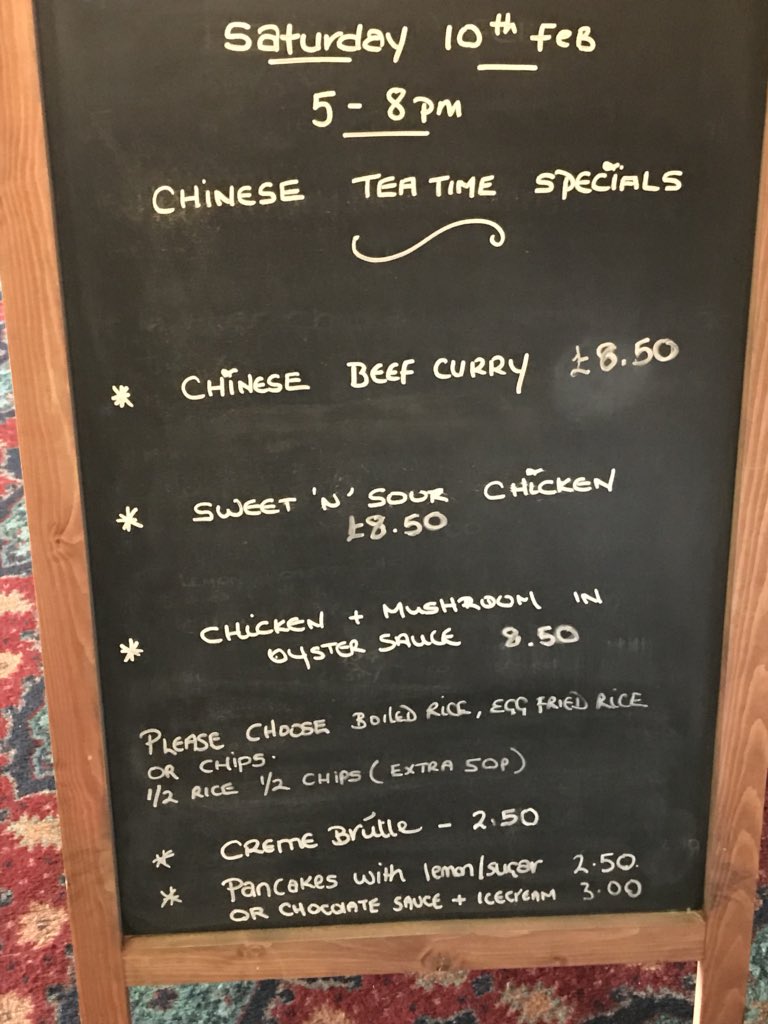 Saturday 10th Feb
5 - 8pm
CHINESE TEA TIME SPECIALS
* CHINESE BEEF CURRY £8.50
* SWEET 'N' SOUR CHICKEN
£8.50
* CHICKEN + MUSHROOM IN
OYSTER SAUCE 8.50
PLEASE CHOOSE BOILED RICE, EGG FRIED RICE
OR CHIPS.
1/2 RICE 1/2 CHIPS (EXTRA 50P)
* CREME Brúlle - 2.50
* Pancakes with lemon/sugar 2.50.
OR CHOCOLATE SAUCE + ICECREAM 3.00